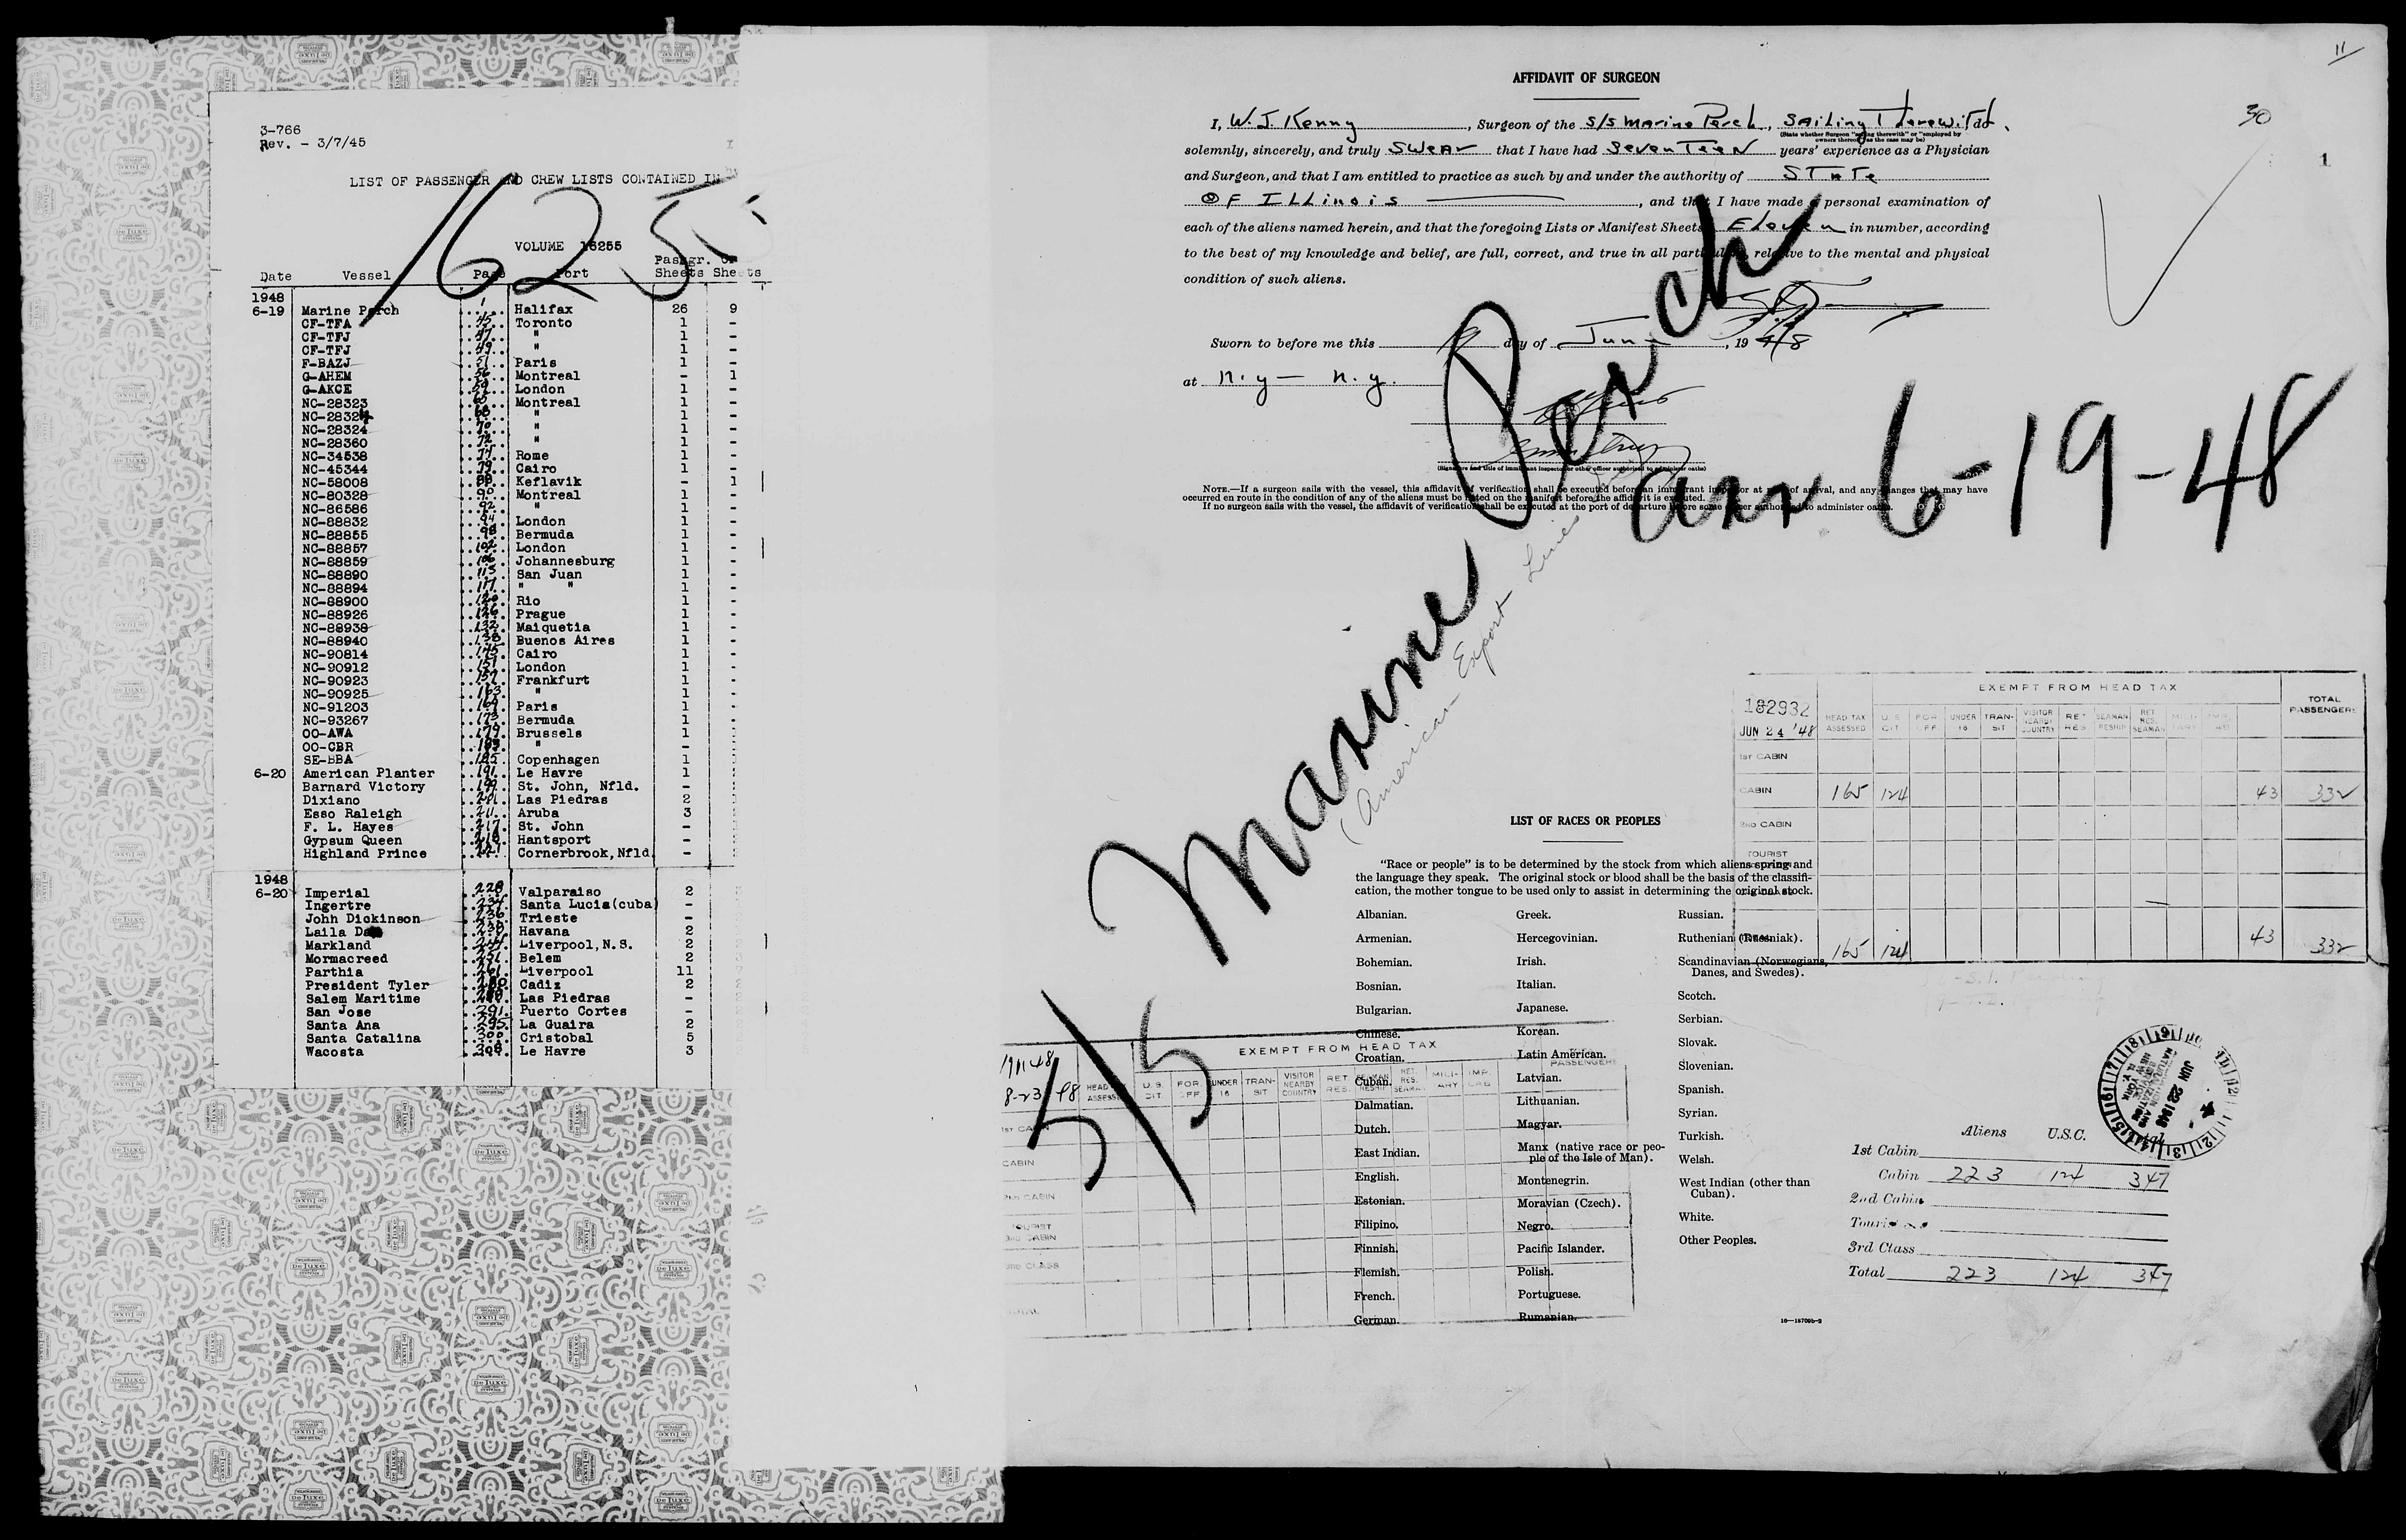 3-766
Rev. - 3/7/45
LIST OF PASSENGER AND CREW LISTS CONTAINED IN
16255
VOLUME 16255
Date Vessel Page Port Passgr. Sheets Sheets
1948
6-19 Marine Perch 1 Halifax 26 9
CF-TFA 45 Toronto 1 -
CF-TFJ 47 " 1 -
CF-TFJ 49 " 1 -
F-BAZJ 51 Paris 1 -
G-AHEM 56 Montreal - 1
G-AKCE 59 London 1 -
NC-28323 65 Montreal 1 -
NC-28324 68 " 1 -
NC-28324 70 " 1 -
NC-28360 72 " 1 -
NC-34538 74 Rome 1 -
NC-45344 79 Cairo 1 -
NC-58008 88 Keflavik - 1
NC-80328 90 Montreal 1 -
NC-86586 92 " 1 -
NC-88832 94 London 1 -
NC-88855 98 Bermuda 1 -
NC-88857 102 London 1 -
NC-88859 106 Johannesburg 1 -
NC-88890 113 San Juan 1 -
NC-88894 117 " " 1 -
NC-88900 120 Rio 1 -
NC-88926 126 Prague 1 -
NC-88938 132 Maiquetia 1 -
NC-88940 138 Buenos Aires 1 -
NC-90814 145 Cairo 1 -
NC-90912 151 London 1 -
NC-90923 157 Frankfurt 1 -
NC-90925 163 " 1 -
NC-91203 169 Paris 1 -
NC-93267 173 Bermuda 1 -
OO-AWA 179 Brussels 1
OO-CBR 183 " -
SE-BBA 185 Copenhagen 1
6-20 American Planter 191 Le Havre 1
Barnard Victory 199 St. John, Nfld. -
Dixiano 201 Las Piedras 2
Esso Raleigh 211 Aruba 3
F. L. Hayes 217 St. John -
Gypsum Queen 218 Hantsport -
Highland Prince 221 Cornerbrook, Nfld -
1948
6-20 Imperial 228 Valparaiso 2
Ingertre 234 Santa Lucia(cuba) -
John Dickinson 236 Trieste -
Laila 239 Havana 2
Markland 244 Liverpool, N.S. 2
Mormacreed 251 Belem 2
Parthia 261 Liverpool 11
President Tyler 280 Cadiz 2
Salem Maritime Las Piedras -
San Jose 291 Puerto Cortes -
Santa Ana 295 La Guaira 2
Santa Catalina 300 Cristobal 5
Wacosta 308 Le Havre 3
11
30
1
AFFIDAVIT OF SURGEON
I, W. J. Kenny, Surgeon of the S/S Marine Perch, Sailing Therewith do
(State whether Surgeon "sailing therewith" or "employed by
owners thereof," as the case may be)
solemnly, sincerely, and truly Swear that I have had SevenTeen years' experience as a Physician
and Surgeon, and that I am entitled to practice as such by and under the authority of STATe
OF ILLinois, and that I have made a personal examination of
each of the aliens named herein, and that the foregoing Lists or Manifest Sheets, Eleven in number, according
to the best of my knowledge and belief, are full, correct, and true in all particulars relative to the mental and physical
condition of such aliens.
Sworn to before me this 19 day of June, 1948
at N.y — N.y.
(Signature and title of immigrant inspector or other officer authorized to administer oaths)
NOTE.—If a surgeon sails with the vessel, this affidavit of verification shall be executed before an immigrant inspector at port of arrival, and any changes that may have
occurred en route in the condition of any of the aliens must be noted on the manifest before the affidavit is executed.
If no surgeon sails with the vessel, the affidavit of verification shall be executed at the port of departure before some officer authorized to administer oaths.
Marine Perch
arr 6-19-48
(American Export Line
515
182932
JUN 24 '48
EXEMPT FROM HEAD TAX
HEAD TAX ASSESSED U.S. CIT FOR OFF UNDER 16 TRAN-SIT VISITOR NEARBY COUNTRY RET RES SEAMAN RESHIP RET. RES. SEAMAN TOTAL PASSENGERS
1ST CABIN
CABIN 165 124 43 332
2ND CABIN
TOURIST
165 124 43 332
LIST OF RACES OR PEOPLES
"Race or people" is to be determined by the stock from which aliens spring and
the language they speak. The original stock or blood shall be the basis of the classifi-
cation, the mother tongue to be used only to assist in determining the original stock.
Albanian.
Armenian.
Bohemian.
Bosnian.
Bulgarian.
Chinese.
Croatian.
Cuban.
Dalmatian.
Dutch.
East Indian.
English.
Estonian.
Filipino.
Finnish.
Flemish.
French.
German.
Greek.
Hercegovinian.
Irish.
Italian.
Japanese.
Korean.
Latin American.
Latvian.
Lithuanian.
Magyar.
Manx (native race or peo-
ple of the Isle of Man).
Montenegrin.
Moravian (Czech).
Negro.
Pacific Islander.
Polish.
Portuguese.
Rumanian.
Russian.
Ruthenian (Russniak).
Scandinavian (Norwegians,
Danes, and Swedes).
Scotch.
Serbian.
Slovak.
Slovenian.
Spanish.
Syrian.
Turkish.
Welsh.
West Indian (other than
Cuban).
White.
Other Peoples.
EXEMPT FROM HEAD TAX
HEAD ASSESSED U.S. CIT FOR. OFF UNDER 16 TRAN-SIT VISITOR NEARBY COUNTRY RET RES. SEAMAN RESHIP RET. RES. SEAMAN MILI-ARY IMP. CAB PASSENGERS
1ST CABIN
CABIN
2ND CABIN
TOURIST
3RD CABIN
CLASS
TOTAL
JUN 22 1948
Aliens U.S.C.
1st Cabin
Cabin 223 124 347
2nd Cabin
Tourist
3rd Class
Total 223 124 347
16—18709b-2